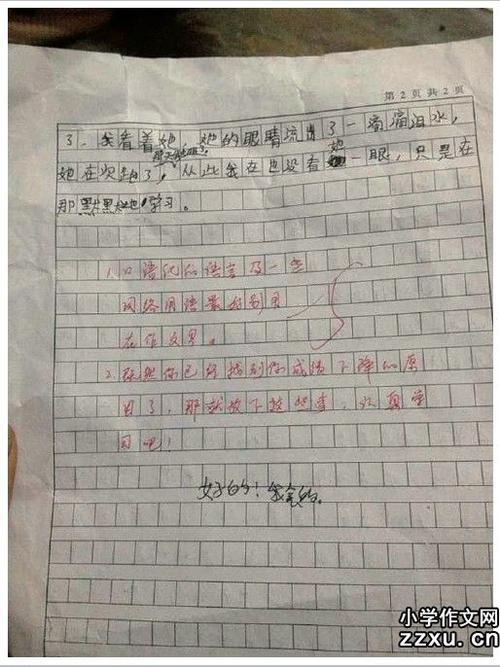 第 2 页 共 2 页
了。我看着她,她的眼睛流出了一滴滴泪水,
她在次跑了,从此我在也没看她一眼,只是在
那默默地学习。
1.口语化的语言及一些
网络用语最好别用
在作文里。
2.既然你已经找到你成绩下降的原
因了,那就放下这些事,认真学
习吧!
好的!我会的。
小学作文网
zzxu.cn